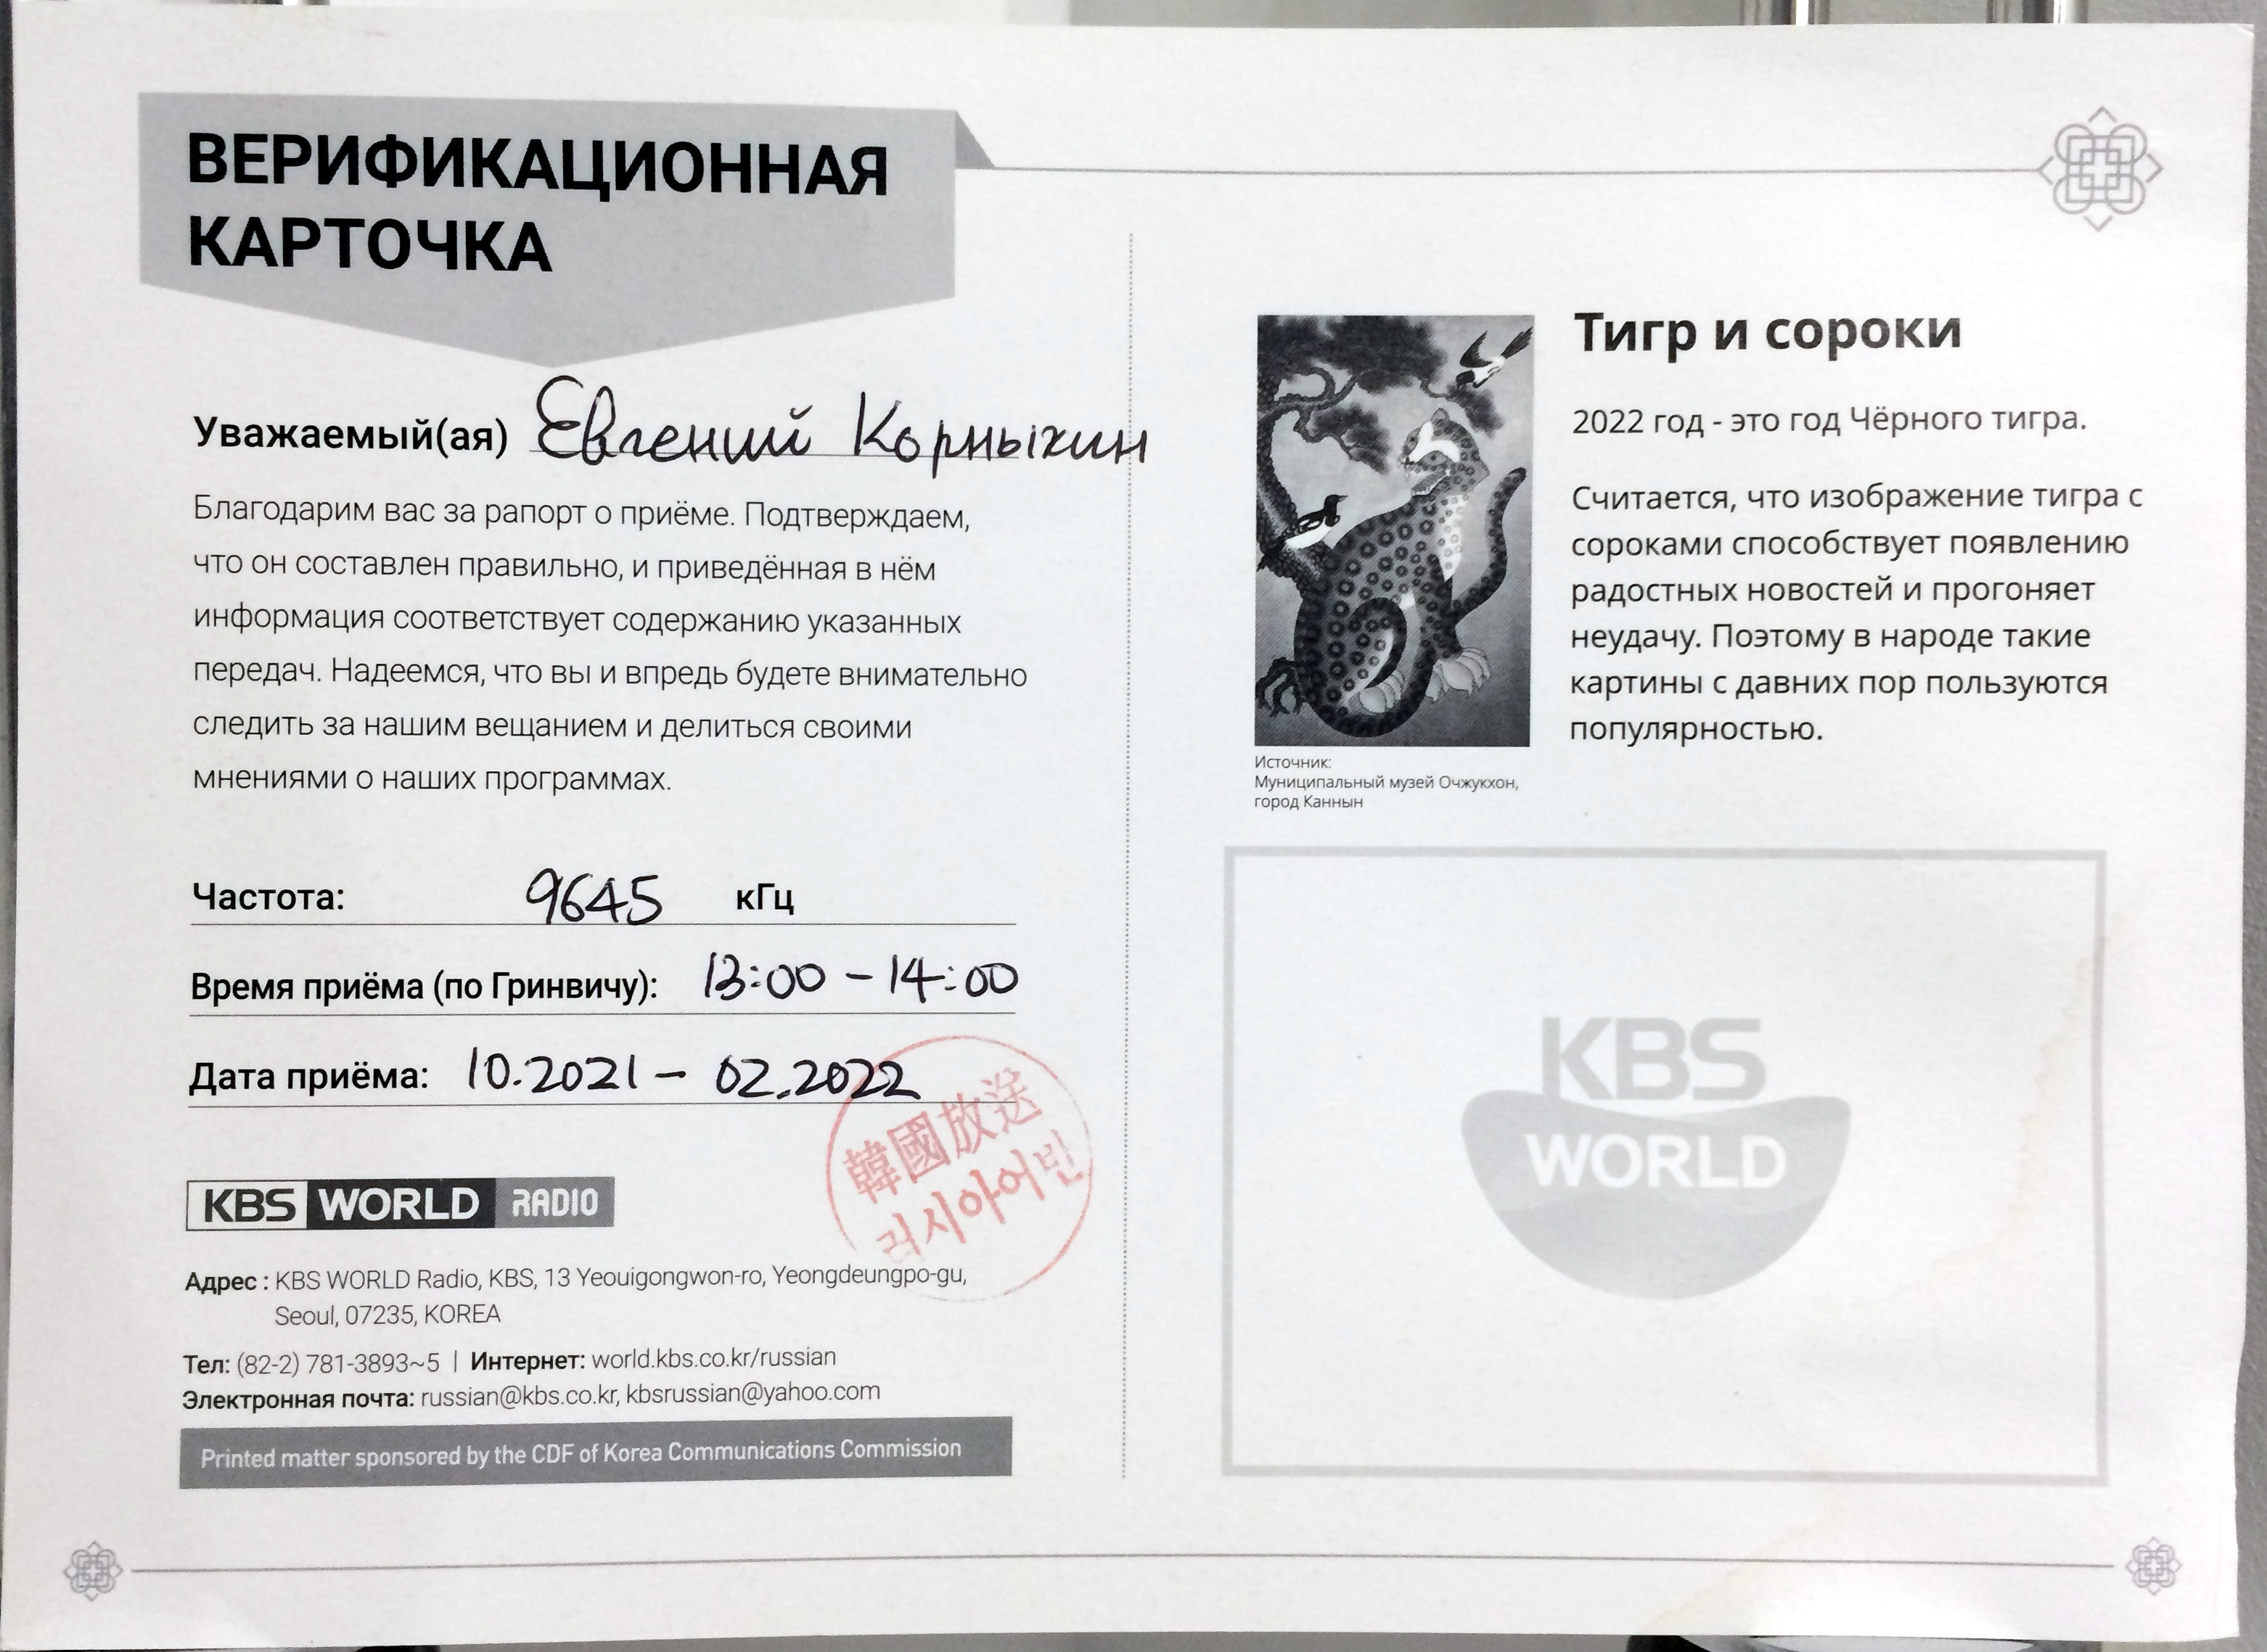 ВЕРИФИКАЦИОННАЯ
КАРТОЧКА
Уважаемый(ая) Евгений Корныхин
Благодарим вас за рапорт о приёме. Подтверждаем,
что он составлен правильно, и приведённая в нём
информация соответствует содержанию указанных
передач. Надеемся, что вы и впредь будете внимательно
следить за нашим вещанием и делиться своими
мнениями о наших программах.
Частота: 9645 кГц
Время приёма (по Гринвичу): 13:00 - 14:00
Дата приёма: 10.2021 - 02.2022
韓國放送
러시아어반
KBS WORLD RADIO
Адрес : KBS WORLD Radio, KBS, 13 Yeouigongwon-ro, Yeongdeungpo-gu,
Seoul, 07235, KOREA
Тел: (82-2) 781-3893~5 | Интернет: world.kbs.co.kr/russian
Электронная почта: russian@kbs.co.kr, kbsrussian@yahoo.com
Printed matter sponsored by the CDF of Korea Communications Commission
Тигр и сороки
2022 год - это год Чёрного тигра.
Считается, что изображение тигра с
сороками способствует появлению
радостных новостей и прогоняет
неудачу. Поэтому в народе такие
картины с давних пор пользуются
популярностью.
Источник:
Муниципальный музей Очжукхон,
город Каннын
KBS
WORLD